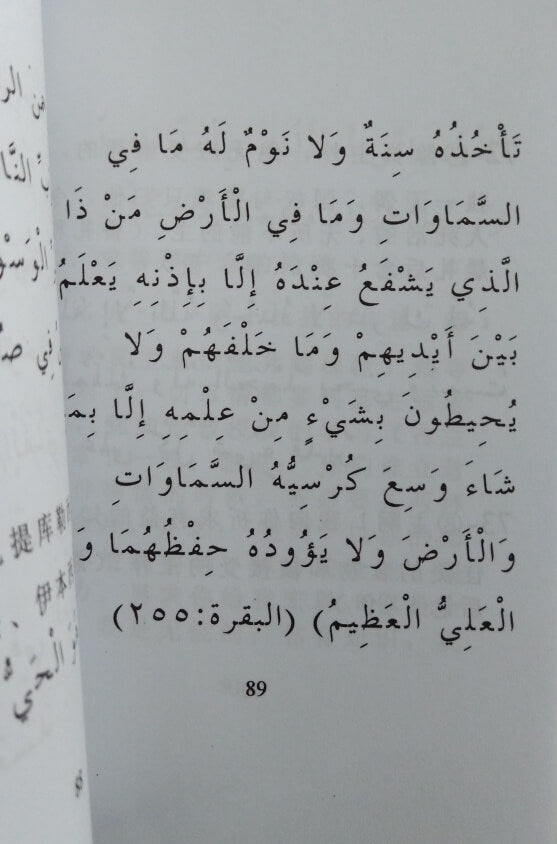 تَأْخُذُهُ سِنَةٌ وَلا نَوْمٌ لَهُ مَا فِي
السَّمَاوَاتِ وَمَا فِي الْأَرْضِ مَنْ ذَا
الَّذِي يَشْفَعُ عِنْدَهُ إِلَّا بِإِذْنِهِ يَعْلَمُ
بَيْنَ أَيْدِيهِمْ وَمَا خَلْفَهُمْ وَلا
يُحِيطُونَ بِشَيْءٍ مِنْ عِلْمِهِ إِلَّا بِمَ
شَاءَ وَسِعَ كُرْسِيُّهُ السَّمَاوَاتِ
وَالْأَرْضَ وَلا يَؤُودُهُ حِفْظُهُمَا وَ
الْعَلِيُّ الْعَظِيمُ) (البقرة:٢٥٥)
89
提库勒
伊本